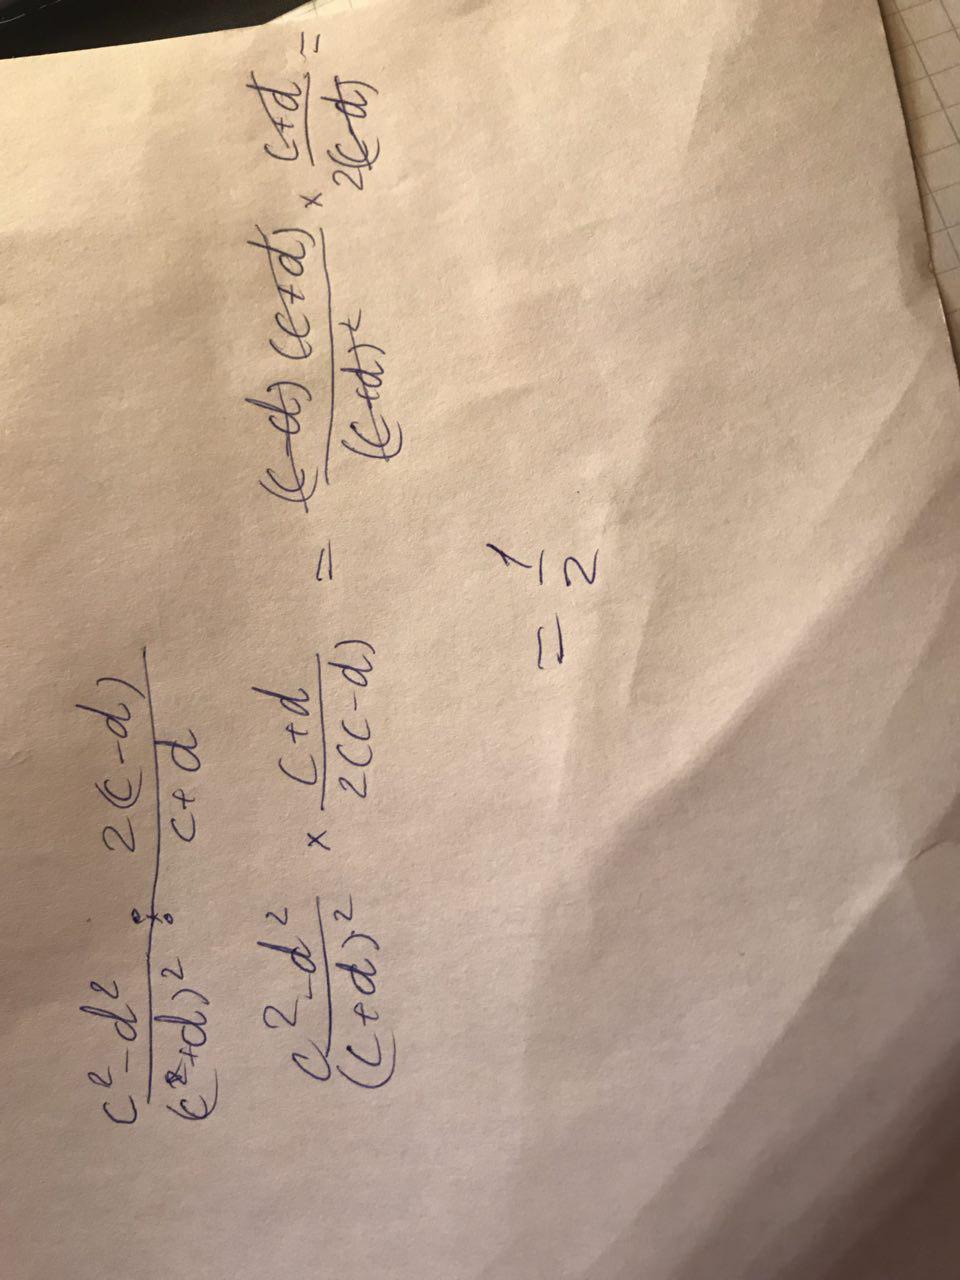 (c²-d²)/(c+d)² : 2(c-d)/(c+d)
(c²-d²)/(c+d)² × (c+d)/2(c-d) = (c-d)(c+d)/(c+d)² × (c+d)/2(c-d) =
= 1/2